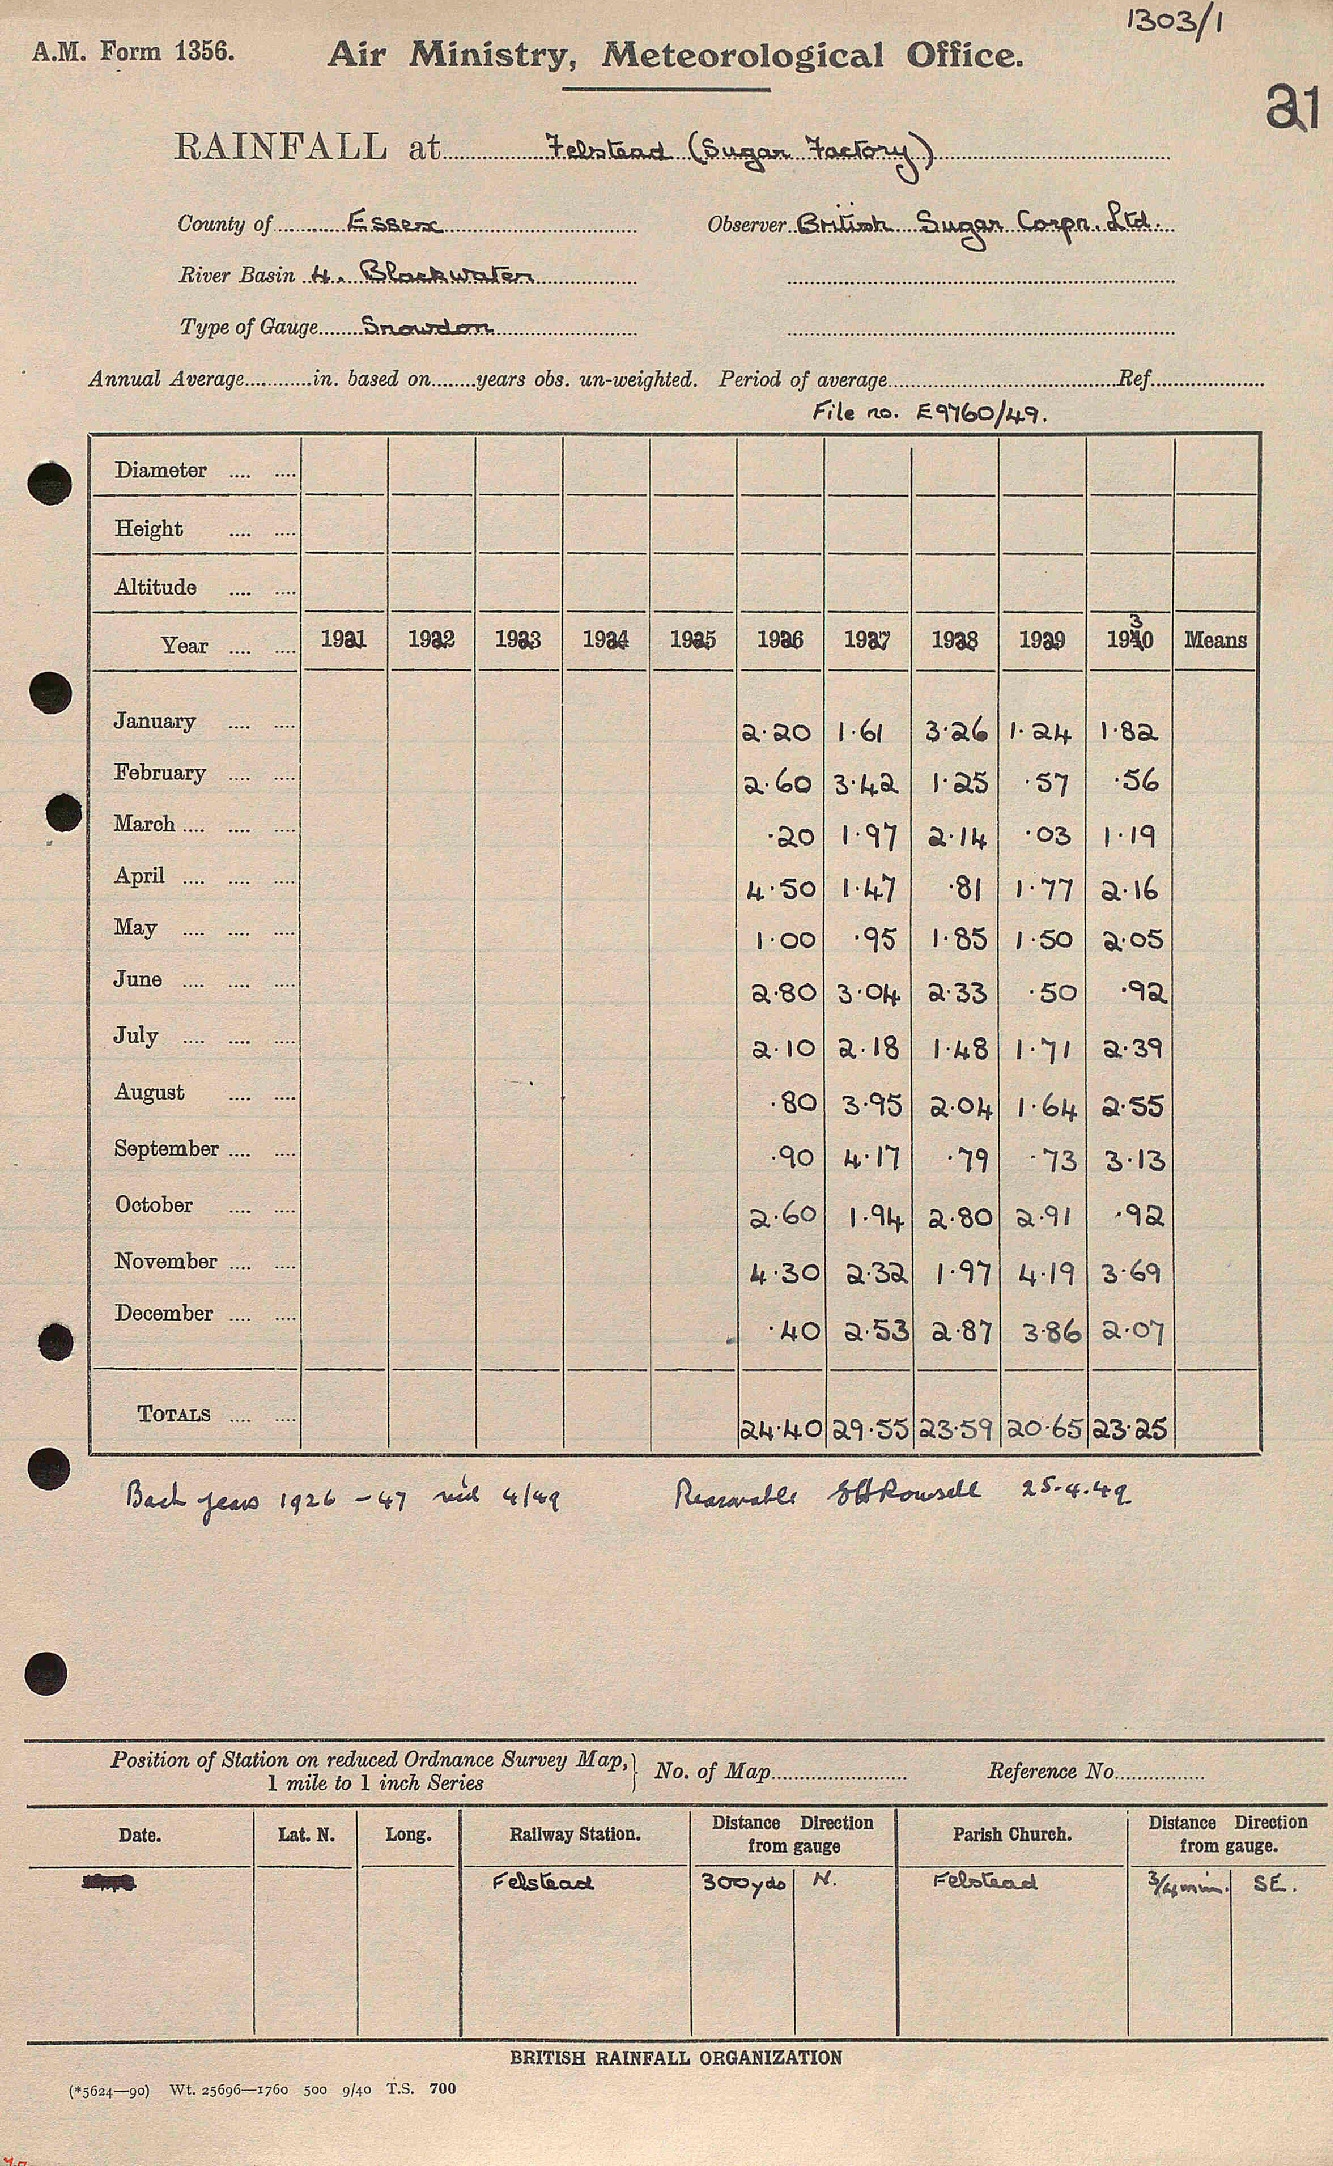 1303/1
A.M. Form 1356.
Air Ministry, Meteorological Office.
21
RAINFALL at Felstead (Sugar Factory)
County of Essex Observer British Sugar Corpn. Ltd.
River Basin 4. Blackwater
Type of Gauge Snowdon
Annual Average............in. based on........years obs. un-weighted. Period of average........Ref........
File no. E9760/49.
Diameter .... ....
Height .... ....
Altitude .... ....
Year .... .... 1921 1922 1923 1924 1925 1926 1927 1928 1929 1930 Means
January .... .... 2.20 1.61 3.26 1.24 1.82
February .... .... 2.60 3.42 1.25 .57 .56
March .... .... .... .20 1.97 2.14 .03 1.19
April .... .... .... 4.50 1.47 .81 1.77 2.16
May .... .... .... 1.00 .95 1.85 1.50 2.05
June .... .... .... 2.80 3.04 2.33 .50 .92
July .... .... .... 2.10 2.18 1.48 1.71 2.39
August .... .... .80 3.95 2.04 1.64 2.55
September .... .... .90 4.17 .79 .73 3.13
October .... .... 2.60 1.94 2.80 2.91 .92
November .... .... 4.30 2.32 1.97 4.19 3.69
December .... .... .40 2.53 2.87 3.86 2.07
TOTALS .... .... 24.40 29.55 23.59 20.65 23.25
Back years 1926 - 47 rec'd 4/49 Reasonable Rowsell 25.4.49
Position of Station on reduced Ordnance Survey Map, No. of Map........ Reference No........
1 mile to 1 inch Series
Date. Lat. N. Long. Railway Station. Distance Direction from gauge Parish Church. Distance Direction from gauge.
Felstead 300yds N. Felstead 3/4 min. SE.
BRITISH RAINFALL ORGANIZATION
(*5624—90) Wt. 25696—1760 500 9/40 T.S. 700